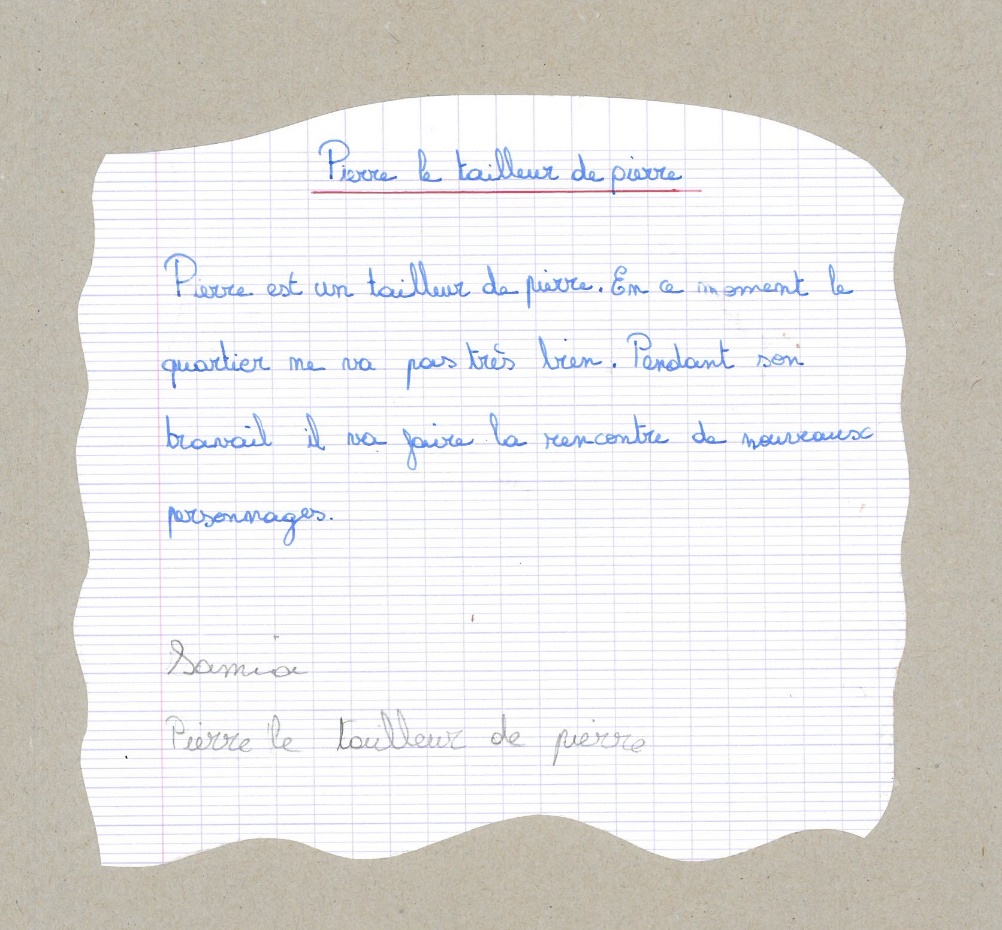 Pierre le tailleur de pierre
Pierre est un tailleur de pierre. En ce moment le
quartier ne va pas très bien. Pendant son
travail il va faire la rencontre de nouveaux
personnages.
Samia
Pierre le tailleur de pierre